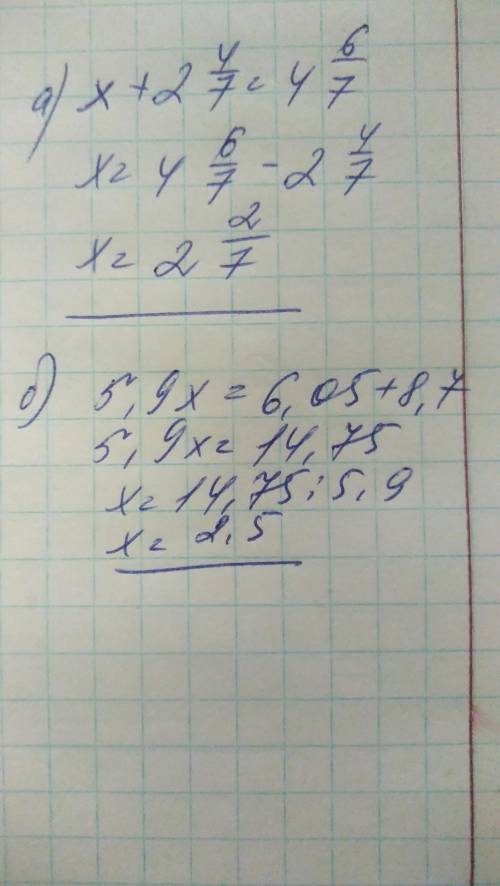 а) x + 2 4/7 = 4 6/7
x = 4 6/7 - 2 4/7
x = 2 2/7
б) 5,9x = 6,05 + 8,7
5,9x = 14,75
x = 14,75 : 5,9
x = 2,5